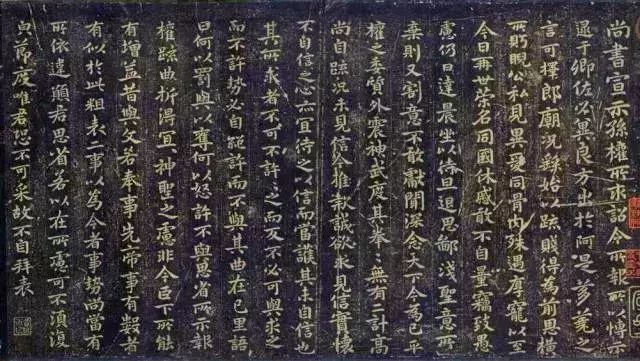 尚書宣示孫權所求詔令所報所以博示
逮于卿佐必冀良方出於阿是芻蕘之
言可擇郎廟況繇始以疏賤得為前恩橫
所盻睨公私見異愛同骨肉殊遇厚寵以至
今日再世榮名同國休慼敢不自量竊致愚
慮仍日達晨坐以待旦退思鄙淺聖意所
棄則又割意不敢獻聞深念天下今為已平
權之委質外震神武度其拳〻無有二計高
尚自疏況未見信今推款誠欲求見信實懷
不自信之心亦宜待之以信而當護其未自信也
其所求者不可不許〻之而反不必可與求之
而不許勢必自絕許而不與其曲在己里語
曰何以罰與以奪何以怒許不與思省所示報
權疏曲折得宜〻神聖之慮非今臣下所能
有增益昔與文若奉事先帝事有數者
有似於此粗表二事以為今者事勢尚當有
所依違願君思省若以在所慮可不須復
貌節度唯君恐不可采故不自拜表